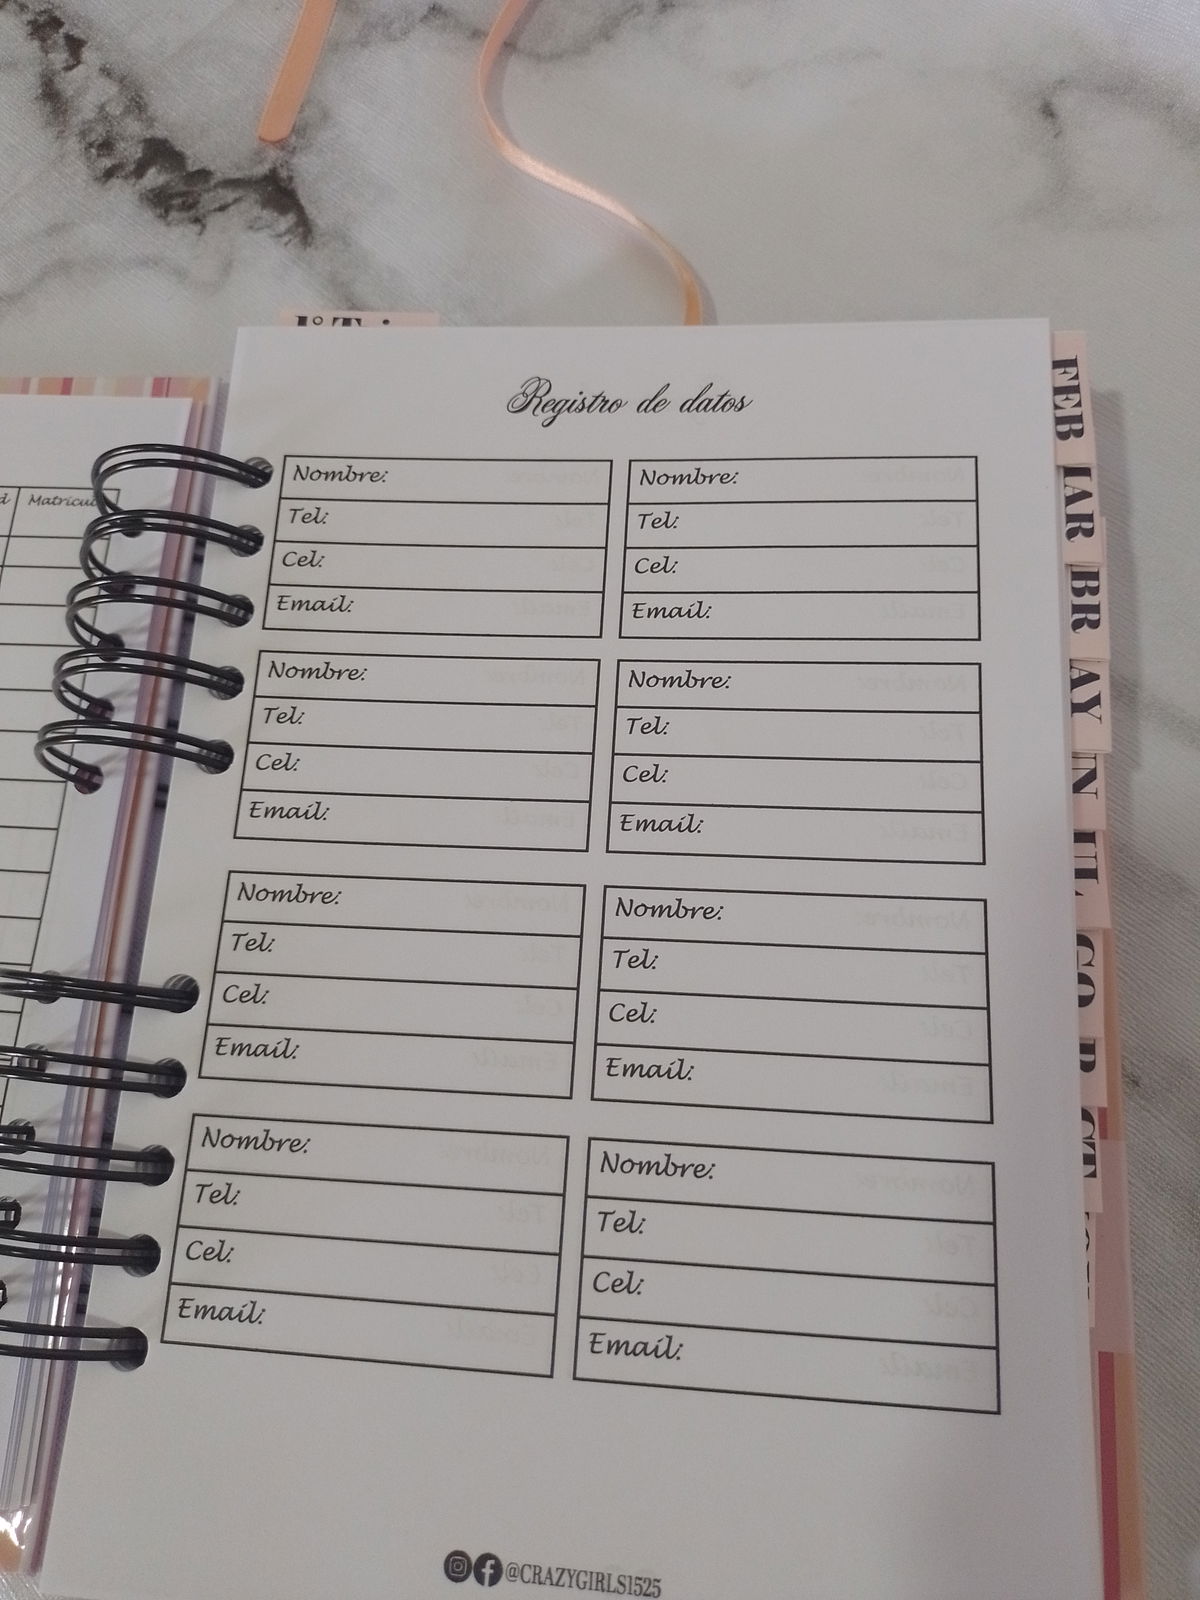 Registro de datos
Nombre:
Tel:
Cel:
Email:
Nombre:
Tel:
Cel:
Email:
Nombre:
Tel:
Cel:
Email:
Nombre:
Tel:
Cel:
Email:
Nombre:
Tel:
Cel:
Email:
Nombre:
Tel:
Cel:
Email:
Nombre:
Tel:
Cel:
Email:
Nombre:
Tel:
Cel:
Email:
@CRAZYGIRLS1525
FEB